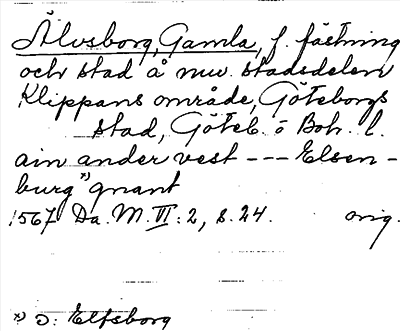 Älvsborg, Gamla, f. fästning
och stad å nuv. stadsdelen
Klippans område, Göteborgs
stad, Göteb. o Boh. l.
ain ander vest --- Elsen-
burg *) gnant
1567 Da. M. III: 2, s. 24. orig.
*) ɔ: Elfsborg